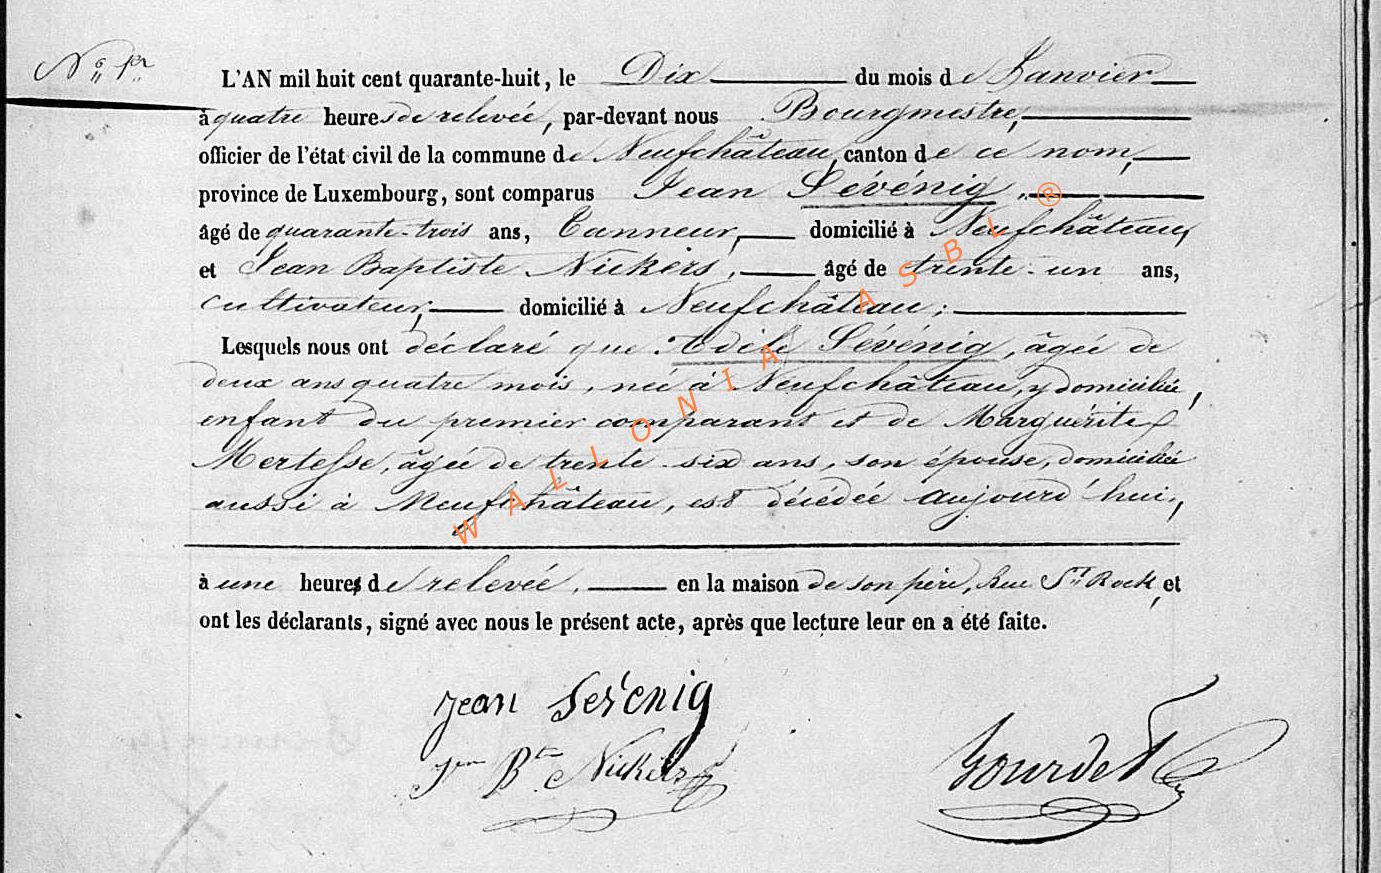 N° 1er
L'AN mil huit cent quarante-huit, le Dix du mois de Janvier
à quatre heures de relevée, par-devant nous Bourgmestre,
officier de l'état civil de la commune de Neufchâteau, canton de ce nom,
province de Luxembourg, sont comparus Jean Sévénig,
âgé de quarante-trois ans, Tanneur, domicilié à Neufchâteau,
et Jean Baptiste Nickers, âgé de trente-un ans,
cultivateur, domicilié à Neufchâteau;
Lesquels nous ont déclaré que Adile Sévénig, âgée de
deux ans quatre mois, née à Neufchâteau, y domiciliée,
enfant du premier comparant et de Marguérite
Mertesse, âgée de trente-six ans, son épouse, domiciliée
aussi à Neufchâteau, est décédée aujourd'hui,
à une heure de relevée, en la maison de son père, Rue St Rock, et
ont les déclarants, signé avec nous le présent acte, après que lecture leur en a été faite.
Jean Sevenig
Jean Bte Nickers
Bourdet
WALLONIA ASBL ®